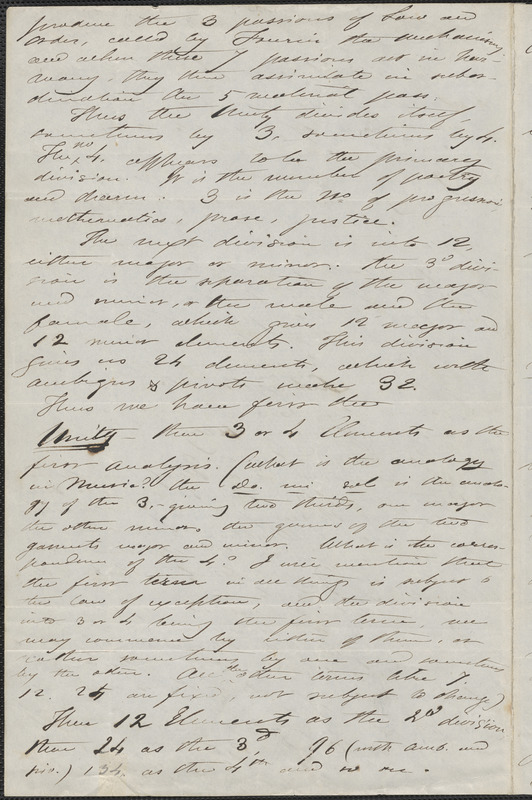 produce the 3 passions of Law and
order, called by Fourier the mechanising
and when these 7 passions act in har-
mony, they then assimilate in subor-
dination the 5 material pass.
Thus the Unity divides itself,
sometimes by 3, sometimes by 4.
The no 4, appears to be the primary
division. It is the number of poetry
and charm. 3 is the No of progression
mathematics, prose, justice.
The next division is into 12
either major or minor. the 3d divi-
sion is the separation of the major
and minor, or the male and the
female, which gives 12 major and
12 minor elements. This division
gives us 24 elements, which with
ambigus & pivots make 32.
Thus we have first the
Unity - then 3 or 4 Elements as the
first analysis. (What is the analogy
in Music? the do. mi sol is the analo-
gy of the 3, - giving two thirds, one major
the other minor, the germs of the two
gamuts major and minor. What is the corres-
pondence of the 4? I will mention that
the first term in all things is subject to
the law of exception, and the division
into 3 or 4 being the first term, we
may commence by either of them, or
rather sometimes by one and sometimes
by the other. All the other terms like 7.
12. 24 are fixed, not subject to change)
Then 12 Elements as the 2d division
then 24 as the 3d, 96 (with amb. and
piv.) 134. as the 4th and so on.